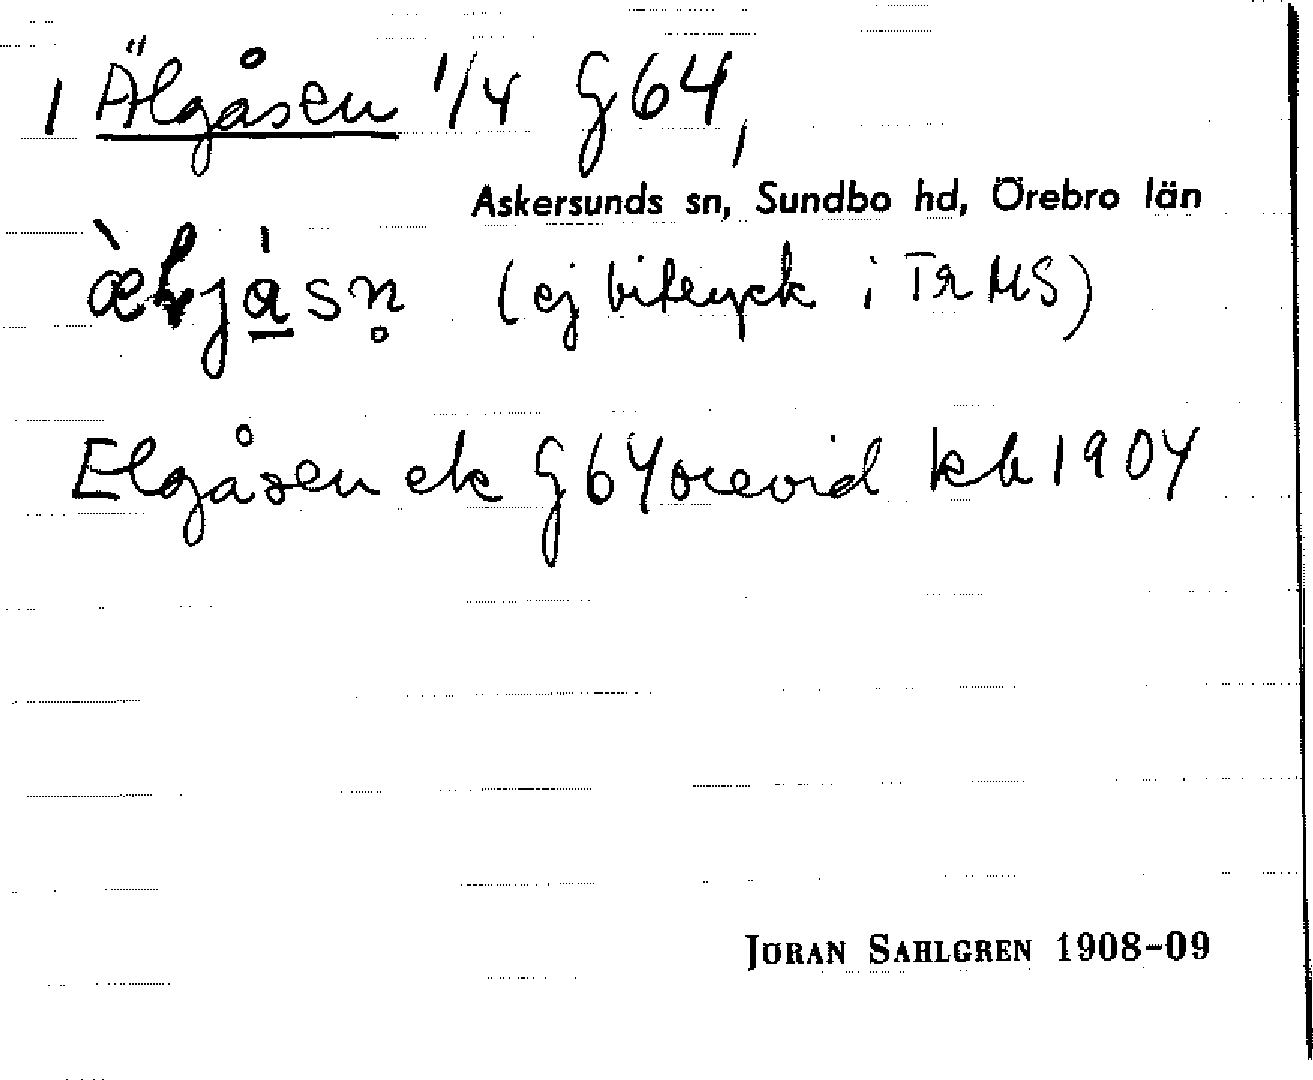 1 Älgåsen 1/4 G 64,
Askersunds sn, Sundbo hd, Örebro län
(ej bitryck i TR MS)
Elgåsen ek G 64 orevid kb 1904
JÖRAN SAHLGREN 1908-09